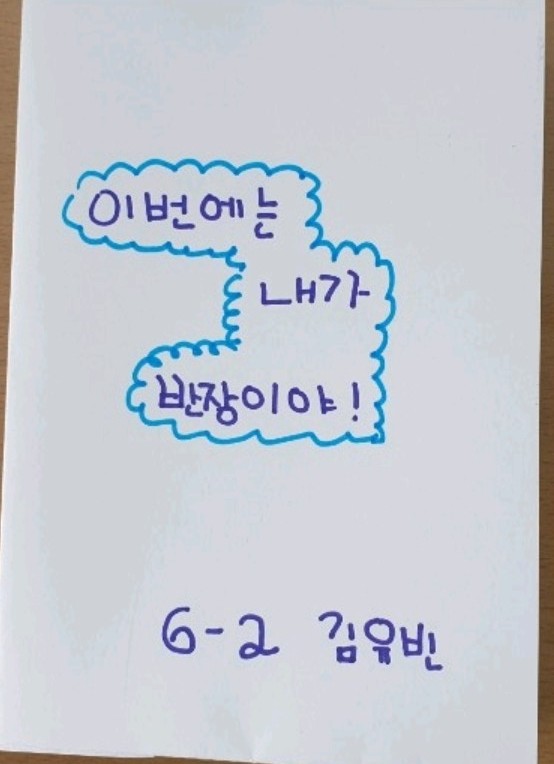 이번에는
내가
반장이야!
6-2 김유빈